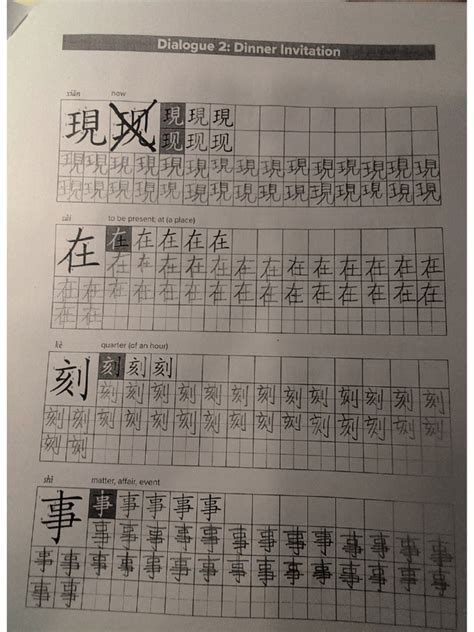 Dialogue 2: Dinner Invitation
xiàn now
現 现 現 現 現
现 现 现
現 現 現 現 現 現 現 現 現 現 現 現 現 現 現
现 现 现 现 现 现 现 现 现 现 现 现 现 现 现
zài to be present; at (a place)
在 在 在 在 在 在
在 在 在 在 在 在 在 在 在 在 在 在 在
在 在 在 在 在 在 在 在 在 在 在 在 在 在 在
在 在
kè quarter (of an hour)
刻 刻 刻 刻
刻 刻 刻 刻 刻 刻 刻 刻 刻 刻 刻 刻 刻
刻 刻 刻 刻 刻 刻 刻 刻 刻 刻 刻 刻 刻 刻 刻
刻 刻
shì matter, affair, event
事 事 事 事 事 事
事 事 事 事 事 事 事 事 事 事 事 事 事
事 事 事 事 事 事 事 事 事 事 事 事 事 事 事
事 事 事